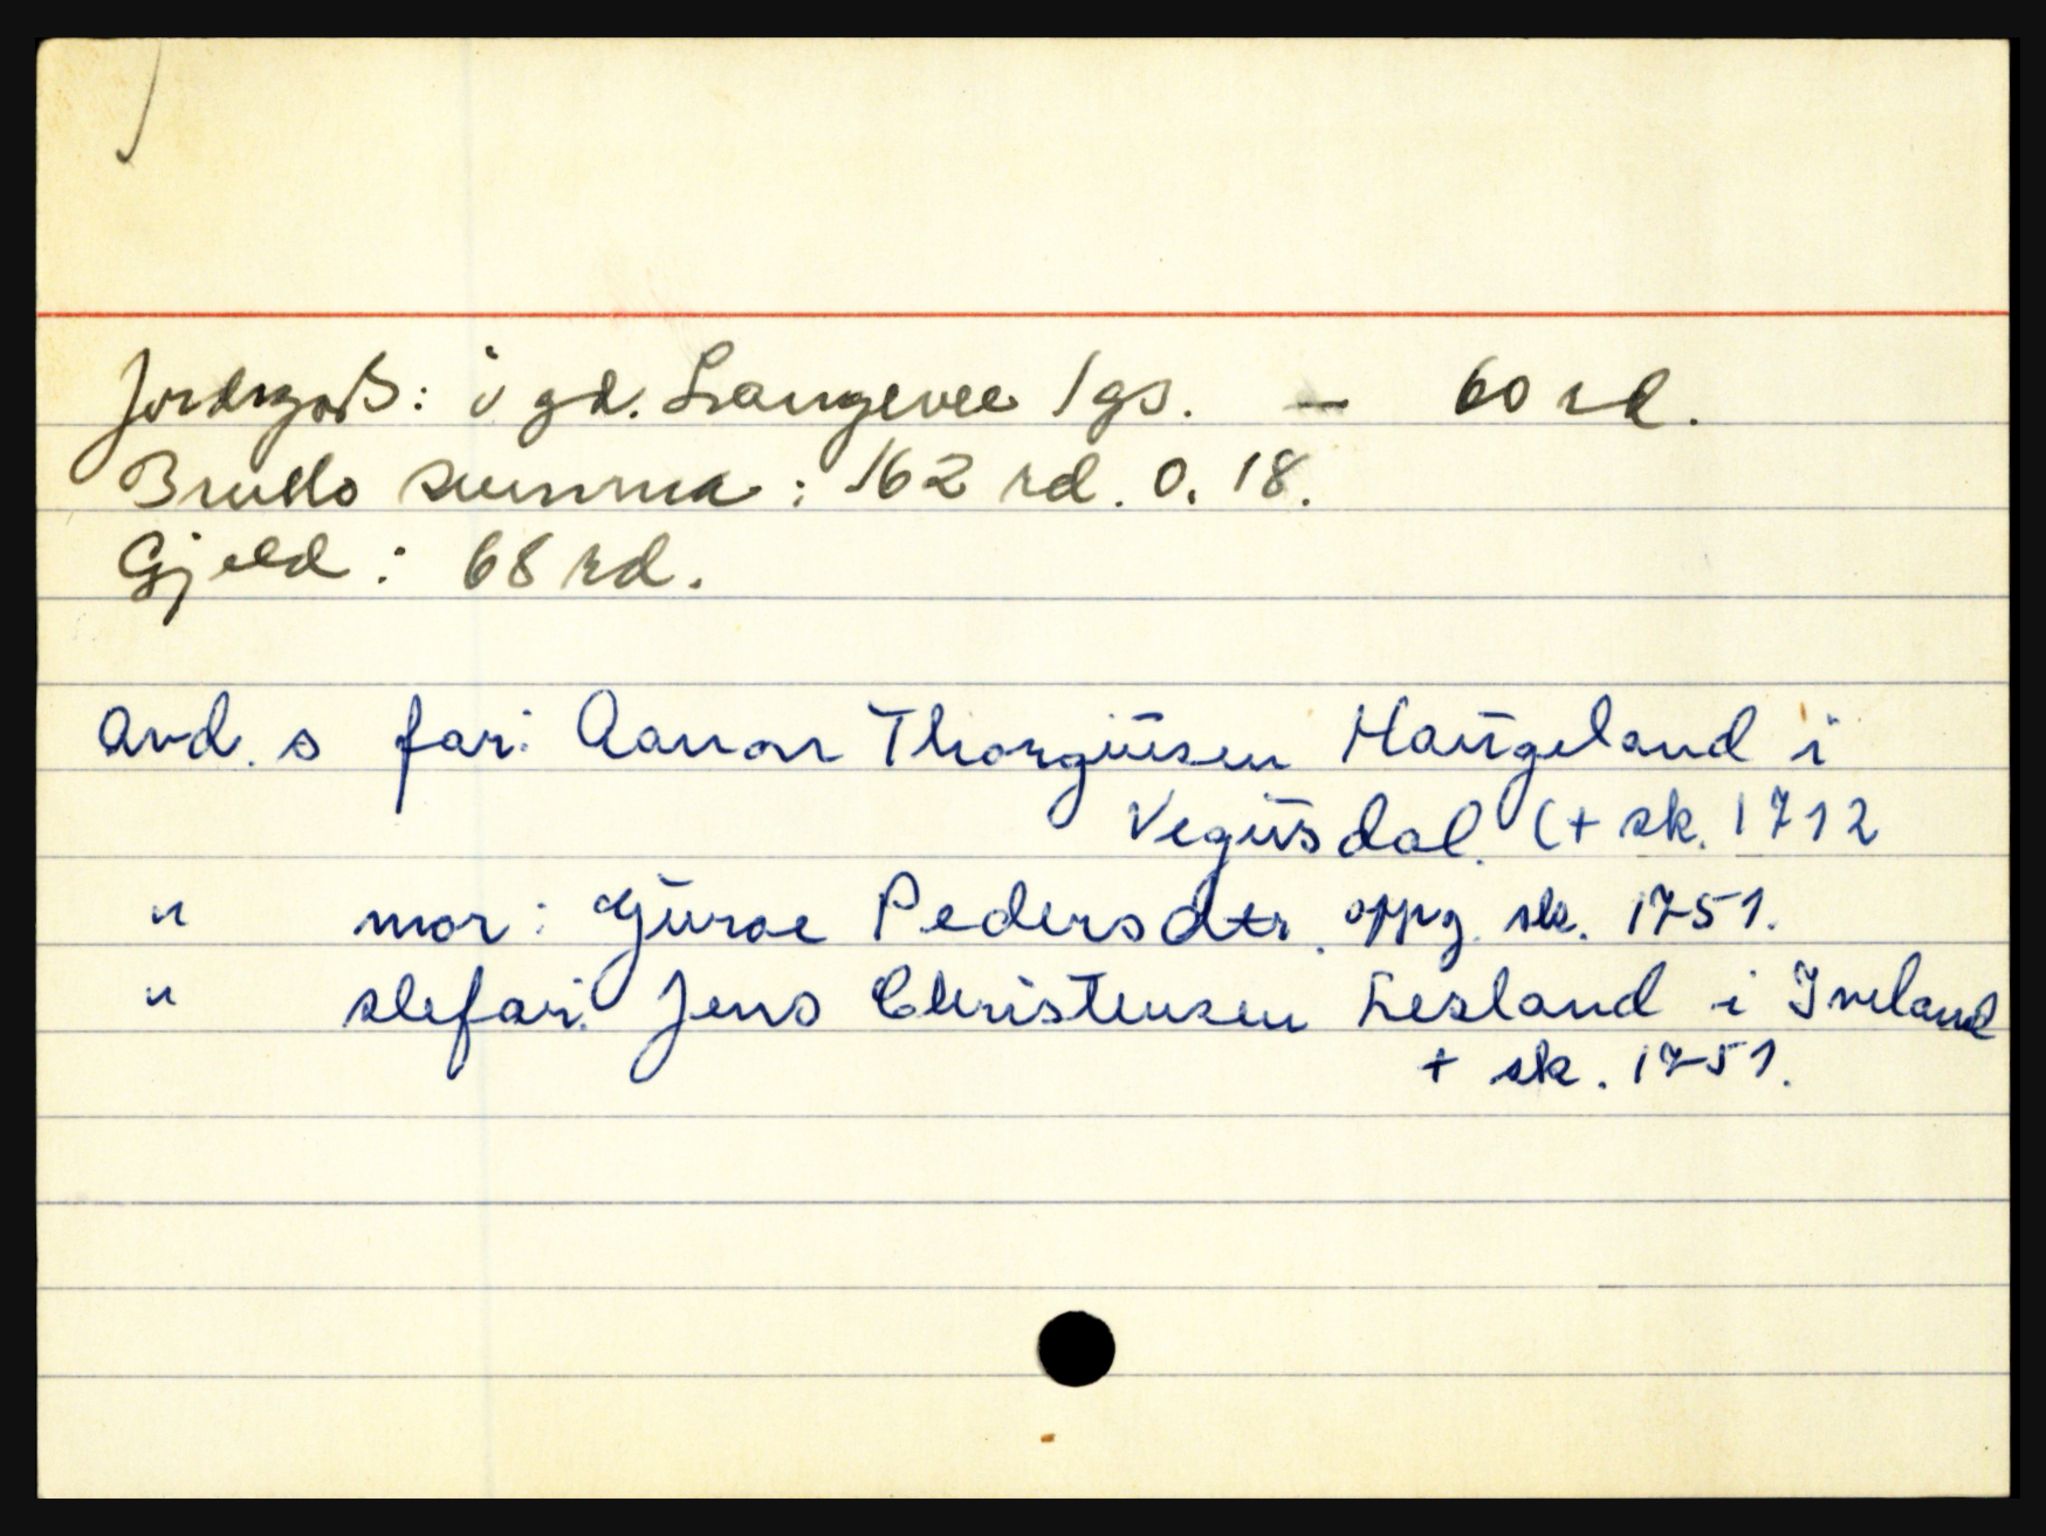 Jordegods: i gd. Langevee 1 gs. — 60 rd.
Brutto summa: 162 rd. 0. 18.
Gjeld: 68 rd.
avd. s far: Aanon Thorgiusen Haugeland i
Vegusdal. (+ sk. 1712
" mor: Gùroe Pedersdtr. oppg. sk. 1751.
" stefar: Jens Christensen Lesland i Iveland
+ sk. 1751.